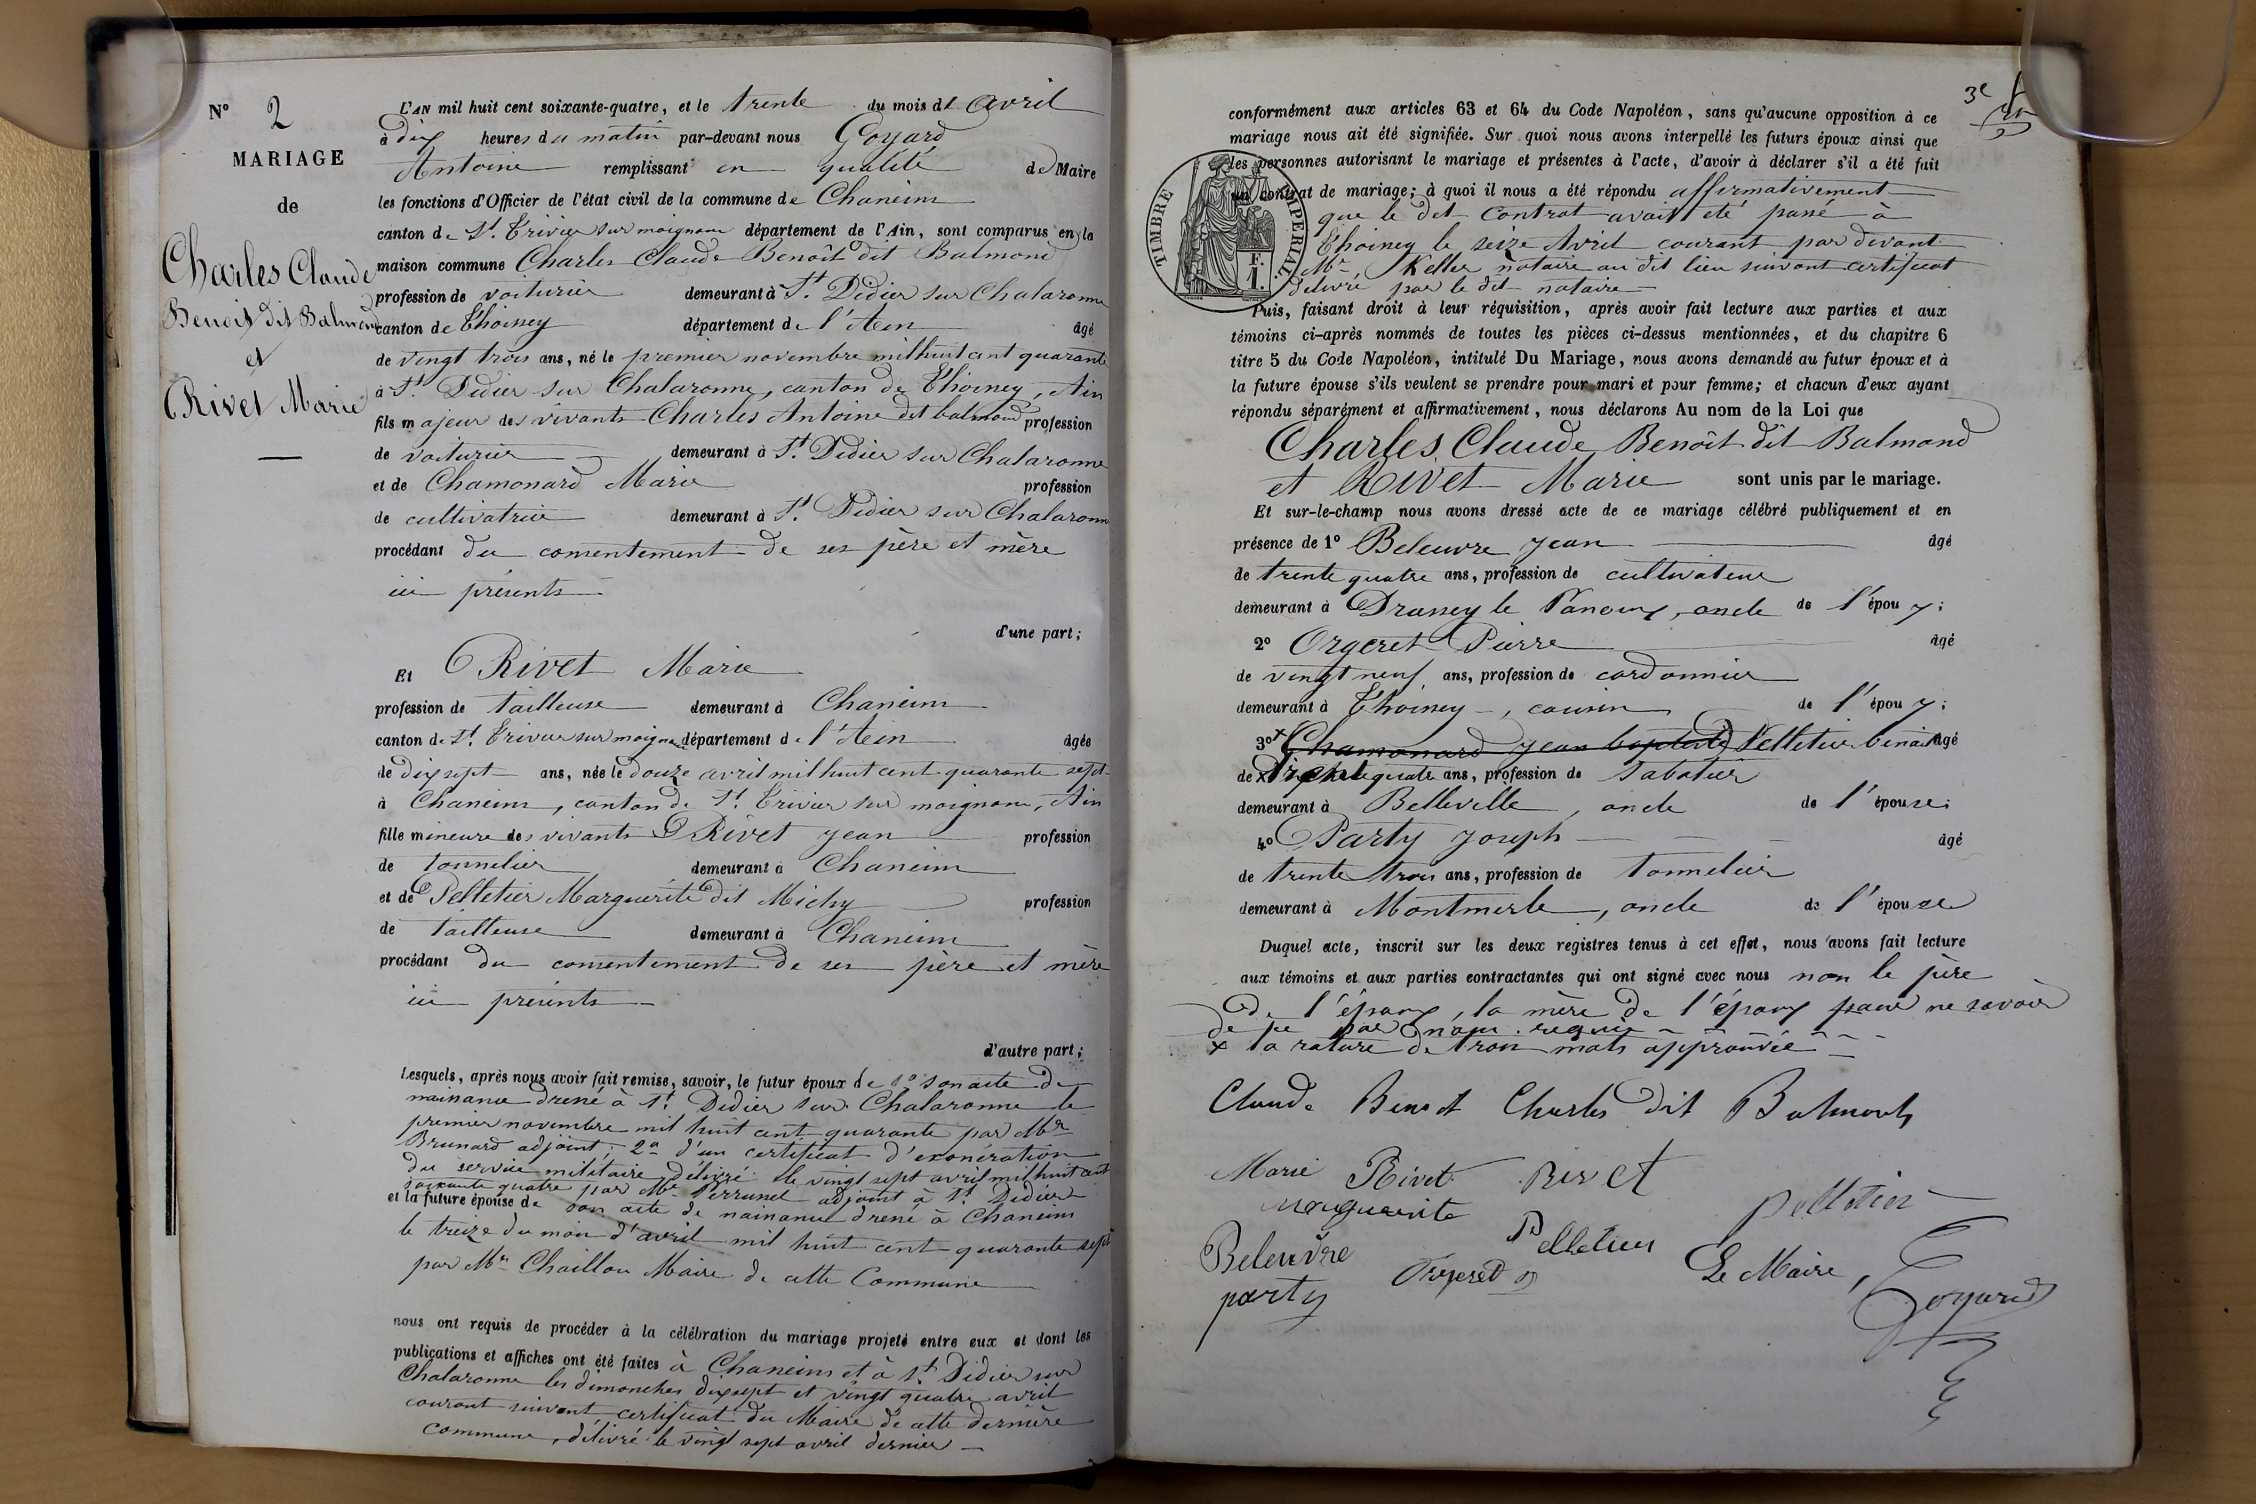 N° 2
MARIAGE
de
Charles Claude
Benoit dit Balmond
et
Rivet Marie
L'AN mil huit cent soixante-quatre, et le trente du mois de avril
à dix heures du matin par-devant nous Goyard
Antoine remplissant en qualité de Maire
les fonctions d'Officier de l'état civil de la commune de Chaneins
canton de St. Trivier sur moignans département de l'Ain, sont comparus en la
maison commune Charles Claude Benoît dit Balmond
profession de voiturier demeurant à St. Didier sur Chalaronne
canton de Thoissey département de l'Ain âgé
de vingt trois ans, né le premier novembre mil huit cent quarante
à St. Didier sur Chalaronne, canton de Thoissey, Ain
fils majeur des vivants Charles Antoine dit balmond profession
de voiturier demeurant à St. Didier sur Chalaronne
et de Chamonard Marie profession
de cultivatrice demeurant à St. Didier sur Chalaronne
procédant du consentement de ses père et mère
ici présents
d'une part;
Et Rivet Marie
profession de tailleuse demeurant à Chaneins
canton de St. Trivier sur moignans département de l'Ain âgée
de dix sept ans, née le douze avril mil huit cent quarante sept
à Chaneins, canton de St. Trivier sur moignans, Ain
fille mineure des vivants Rivet Jean profession
de tonnelier demeurant à Chaneins
et de Pelletier Marguérite dit Michy profession
de tailleuse demeurant à Chaneins
procédant du consentement de ses père et mère
ici présents
d'autre part;
Lesquels, après nous avoir fait remise, savoir, le futur époux de 1° son acte de
naissance dressé à St. Didier sur Chalaronne le
premier novembre mil huit cent quarante par Mr
Brunard adjoint; 2° d'un certificat d'exonération
du service militaire délivré le vingt sept avril mil huit cent
soixante quatre par Mr adjoint à St. Didier
et la future épouse de son acte de naissance dressé à Chaneins
le treize du mois d'avril mil huit cent quarante sept
par Mr Chaillou Maire de cette Commune
nous ont requis de procéder à la célébration du mariage projeté entre eux et dont les
publications et affiches ont été faites à Chaneins et à St. Didier sur
Chalaronne les dimanches dix sept et vingt quatre avril
courant suivant certificat du Maire de cette dernière
commune, délivré le vingt sept avril dernier
3e
conformément aux articles 63 et 64 du Code Napoléon, sans qu'aucune opposition à ce
mariage nous ait été signifiée. Sur quoi nous avons interpellé les futurs époux ainsi que
les personnes autorisant le mariage et présentes à l'acte, d'avoir à déclarer s'il a été fait
un contrat de mariage; à quoi il nous a été répondu affirmativement
que le dit contrat avait été passé à
Thoissey le seize Avril courant par devant
Mr. Keller notaire au dit lieu suivant certificat
délivré par le dit notaire
TIMBRE IMPERIAL
F.
1.
Puis, faisant droit à leur réquisition, après avoir fait lecture aux parties et aux
témoins ci-après nommés de toutes les pièces ci-dessus mentionnées, et du chapitre 6
titre 5 du Code Napoléon, intitulé Du Mariage, nous avons demandé au futur époux et à
la future épouse s'ils veulent se prendre pour mari et pour femme; et chacun d'eux ayant
répondu séparément et affirmativement, nous déclarons Au nom de la Loi que
Charles Claude Benoît dit Balmond
et Rivet Marie sont unis par le mariage.
Et sur-le-champ nous avons dressé acte de ce mariage célébré publiquement et en
présence de 1° Beleuvre Jean âgé
de trente quatre ans, profession de cultivateur
demeurant à oncle de l'époux;
2° Orgeret Pierre âgé
de vingt neuf ans, profession de cordonnier
demeurant à Thoissey, cousin de l'époux;
3° x Chamonard Jean baptiste Pelletier benoit âgé
de x trente quatre ans, profession de sabotier
demeurant à Belleville, oncle de l'épouse;
4° Party Joseph âgé
de trente trois ans, profession de tonnelier
demeurant à Montmerle, oncle de l'épouse
Duquel acte, inscrit sur les deux registres tenus à cet effet, nous avons fait lecture
aux témoins et aux parties contractantes qui ont signé avec nous non le père
de l'époux, la mère de l'époux pour ne savoir
de ce par nous requis
x la rature de trois mots approuvée
Claude Benoit Charles dit Balmont
Marie Rivet Rivet
marguerite Pelletier pelletier
Beleuvre Orgeret Le Maire,
party Goyard